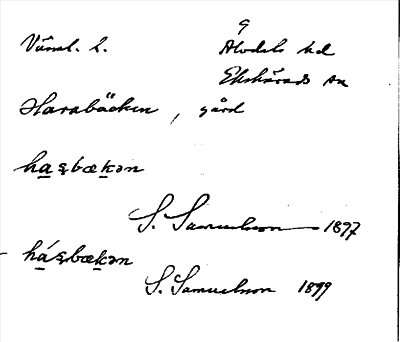 9
Värml. L. Älvdals hd
Ekshärads sn
Harabäcken, gård
ha̱ʂbæḵən
S. Samuelson 1897
há̱ʂbæḵən
S. Samuelson 1899